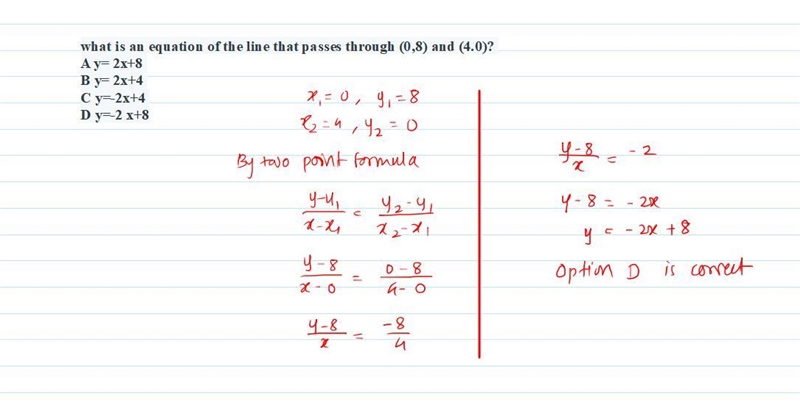 what is an equation of the line that passes through (0,8) and (4.0)?
A y= 2x+8
B y= 2x+4
C y=-2x+4
D y=-2 x+8
x₁ = 0 , y₁ = 8
x₂ = 4 , y₂ = 0
By two point formula
(y-y₁)/(x-x₁) = (y₂-y₁)/(x₂-x₁)
(y-8)/(x-0) = (0-8)/(4-0)
(y-8)/x = -8/4
(y-8)/x = -2
y-8 = -2x
y = -2x+8
Option D is correct